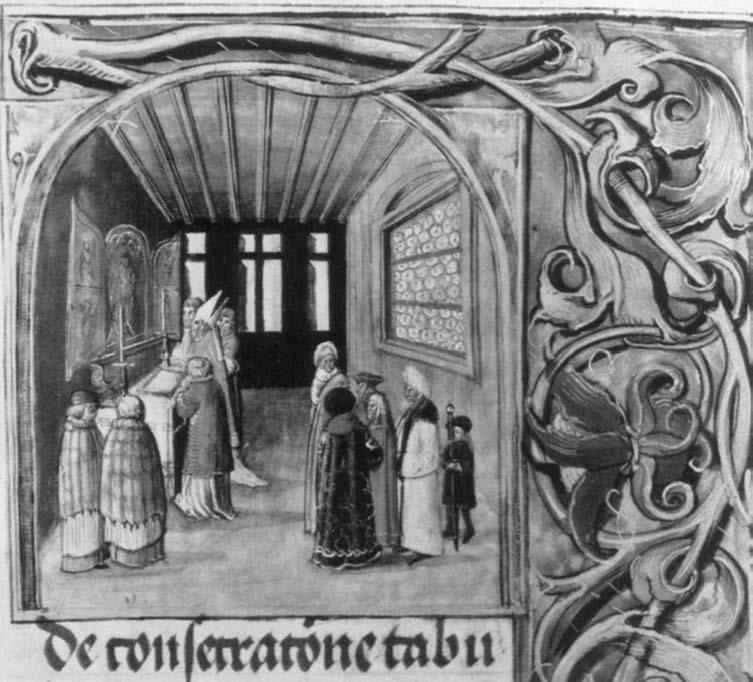 de consecratōne tabu